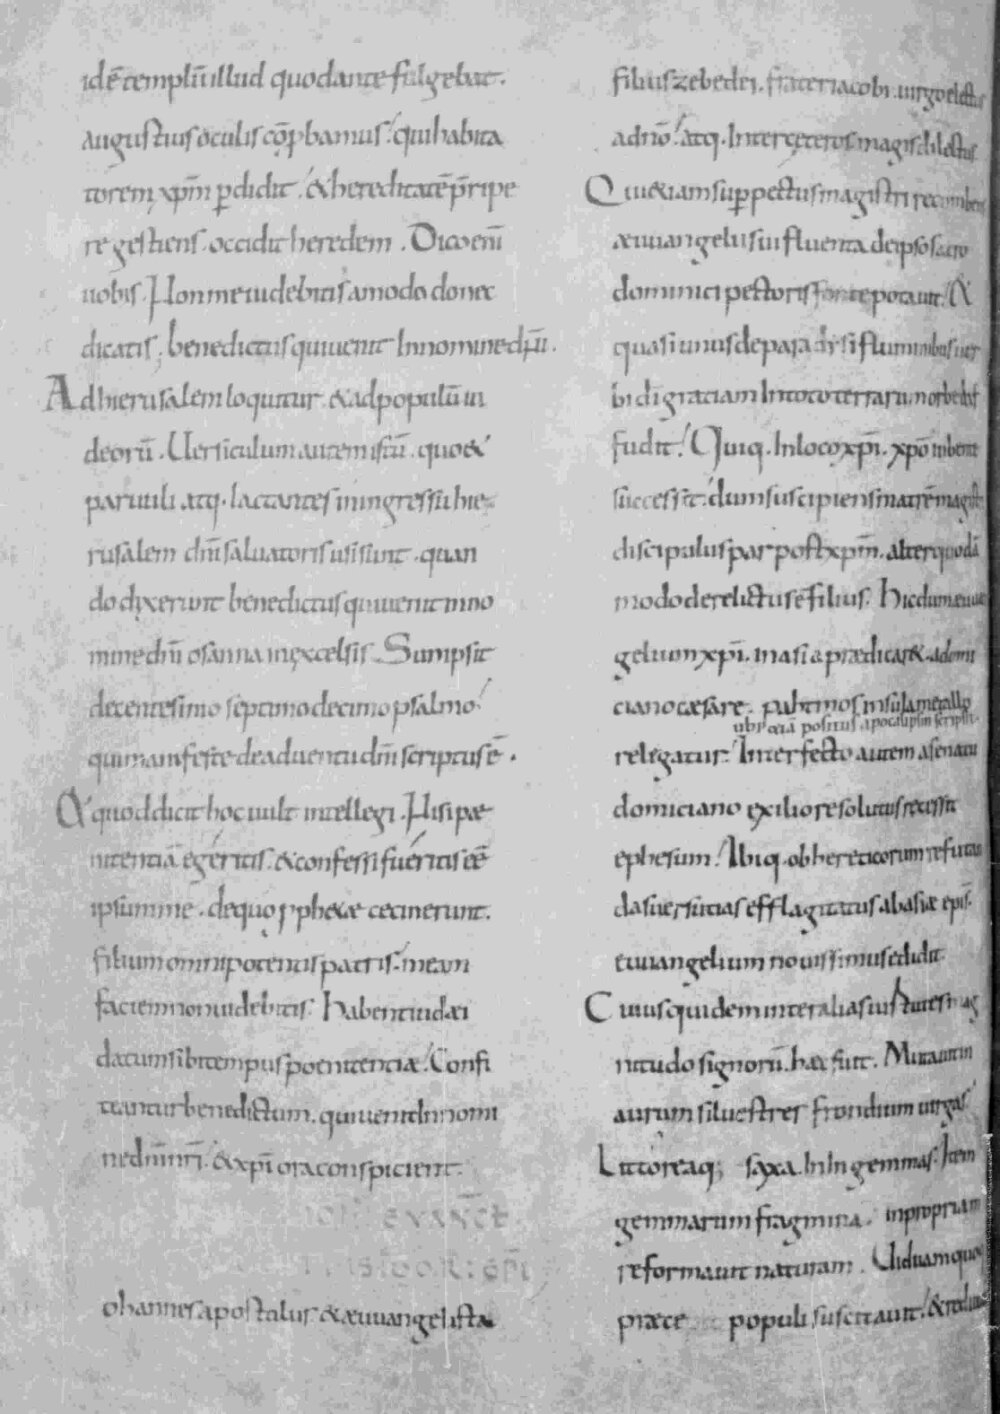 idē templū illud quod ante fulgebat.
augustius oculis cōp̄bamus. qui habita
torem xp̄m perdidit. & hereditatē p̄ripe
re gestiens. occidit heredem. Dico enī
uobis. Non me uidebitis amodo donec
dicatis. benedictus qui uenit In nomine dn̄i.
Ad hierusalem loquitur. & ad populū iu
deorū. Uersiculum autem istū. quo &
paruuli. atq. lactantes in ingressu hie
rusalem dn̄i saluatoris usi sunt. quan
do dixerunt benedictus qui uenit in no
mine dn̄i osanna in excelsis. Sumpsit
de centesimo septimo decimo psalmo
qui manifeste de aduentu dn̄i scriptus ē.
& quod dicit hoc uult intellegi. Nisi pæ
nitentiā egeritis. & confessi fueritis eē
ipsum me. de quo p̄phetæ cecinerunt.
filium omnipotentis patris. meam
faciem non uidebitis. Habent iudæi
datum sibi tempus poenitentiæ. Confi
teantur benedictum. qui uenit In nomi
ne dn̄i nr̄i. & xp̄i ora conspicient.
IOH EVANGE
ohannes apostalus & æuuangelista
filius zebedei. frater iacobi. uirgo electus
a dn̄o. atq. Inter ceteros magis dilectus
Qui etiam supra pectus magistri recumbens
æuuangelii sui fluenta de ipso sacro
dominici pectoris fonte potauit. &
quasi unus de paradisi fluminibus uer
bi dī graciam In toto terrarum orbe dif
fudit. Quiq. In loco xp̄i. xp̄o iubente
successit. dum suscipiens matrē magistri
discipulus par post xp̄m. alter quodā
modo derelictus ē filius. Hic dum æuuan
gelium xp̄i. in asia prædicaret. a domi
ciano cæsare. pahtmos insulam metallo
ubi etiā positus apocalipsin scripsit.
religatur. Interfecto autem a senatu
domiciano exilio resolutus recessit
ephesum. Ibiq. ob hereticorum refutan
das uersutias efflagitatus ab asiæ epis̄.
euuangelium nouissimus edidit
Cuius quidem inter alias uistutes mag
nitudo signorū. hæc fuit. Mutauit in
aurum siluestres frondium uirgas.
Littoreaq; saxa. In In gemmas. Item
gemmarum fragmina. in propriam
reformauit naturam. Uiduam quoq
præce populi suscitauit.